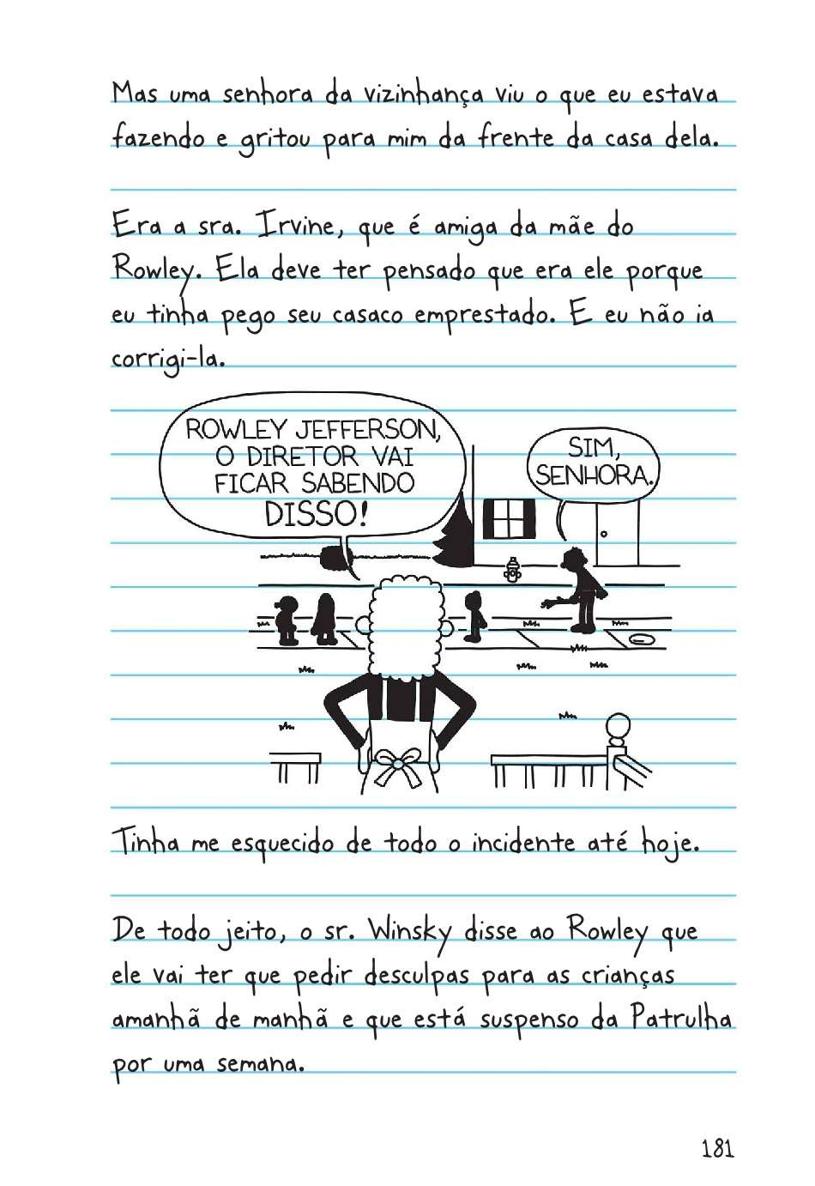 Mas uma senhora da vizinhança viu o que eu estava
fazendo e gritou para mim da frente da casa dela.
Era a sra. Irvine, que é amiga da mãe do
Rowley. Ela deve ter pensado que era ele porque
eu tinha pego seu casaco emprestado. E eu não ia
corrigi-la.
ROWLEY JEFFERSON,
O DIRETOR VAI
FICAR SABENDO
DISSO!
SIM,
SENHORA.
Tinha me esquecido de todo o incidente até hoje.
De todo jeito, o sr. Winsky disse ao Rowley que
ele vai ter que pedir desculpas para as crianças
amanhã de manhã e que está suspenso da Patrulha
por uma semana.
181